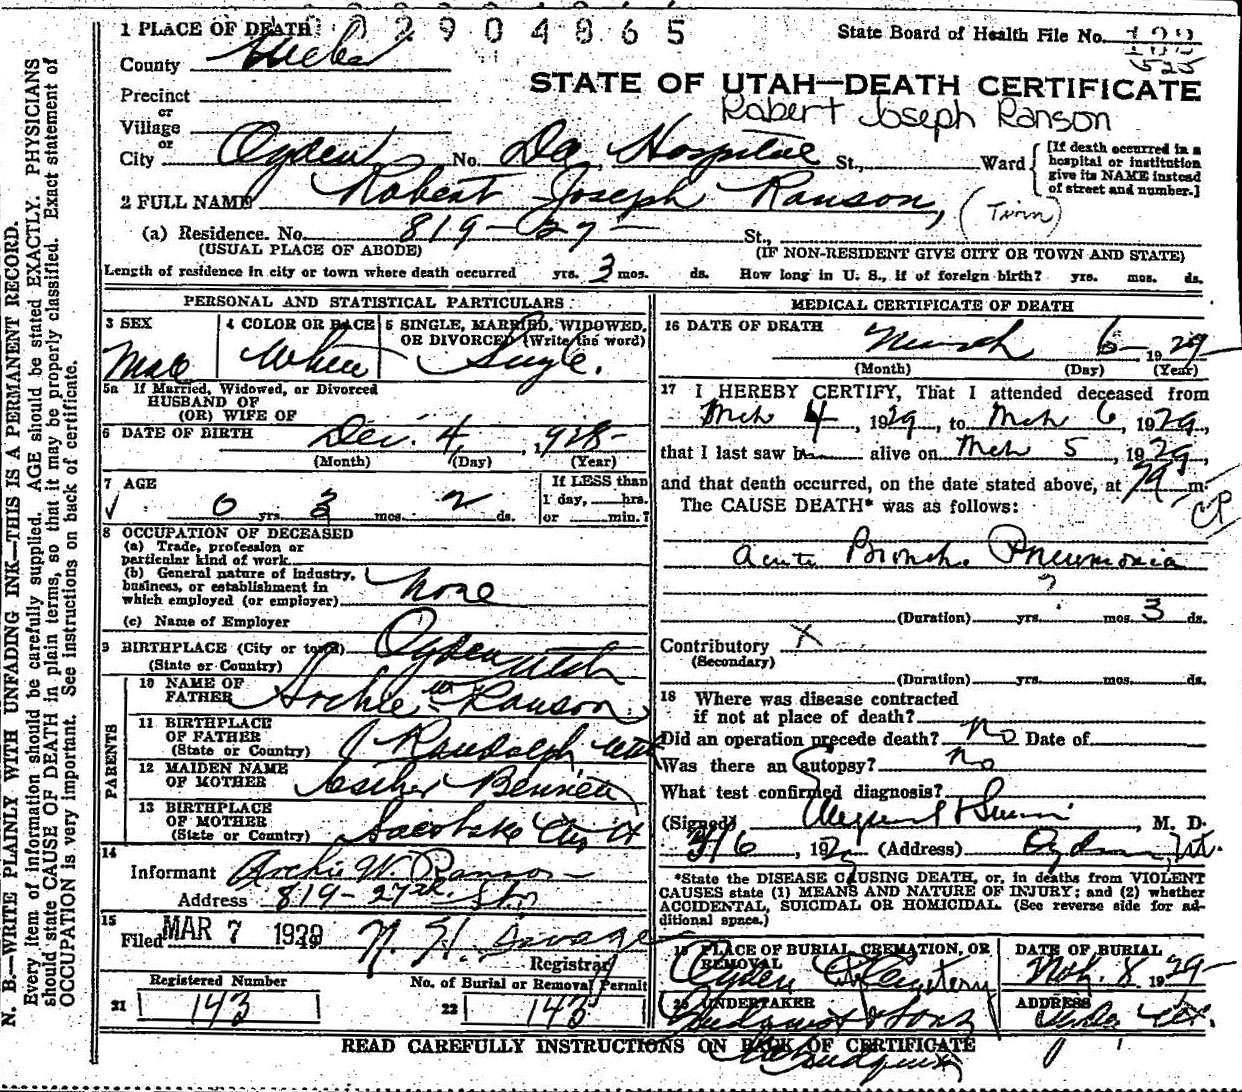 0 0 2 9 0 4 8 6 5
1 PLACE OF DEATH
State Board of Health File No.
525
County Weber
STATE OF UTAH—DEATH CERTIFICATE
Precinct
Robert Joseph Ranson
or
Village
or
City Ogden No. Dee Hospital St., Ward
[If death occurred in a hospital or institution give its NAME instead of street and number.]
2 FULL NAME Robert Joseph Ranson, (Twin)
(a) Residence. No. 819-27- St.,
(USUAL PLACE OF ABODE) (IF NON-RESIDENT GIVE CITY OR TOWN AND STATE)
Length of residence in city or town where death occurred yrs. 3 mos. ds. How long in U. S., if of foreign birth? yrs. mos. ds.
PERSONAL AND STATISTICAL PARTICULARS
3 SEX Male
4 COLOR OR RACE White
5 SINGLE, MARRIED, WIDOWED, OR DIVORCED (Write the word) Single.
5a If Married, Widowed, or Divorced
HUSBAND OF
(OR) WIFE OF
6 DATE OF BIRTH Dec. 4, 1928-
(Month) (Day) (Year)
7 AGE 0 yrs. 3 mos. 2 ds.
If LESS than
1 day, hrs.
or min.?
8 OCCUPATION OF DECEASED
(a) Trade, profession or
particular kind of work
(b) General nature of industry,
business, or establishment in
which employed (or employer) none
(c) Name of Employer
9 BIRTHPLACE (City or town) Ogden Utah
(State or Country)
PARENTS
10 NAME OF FATHER Archie W Ranson
11 BIRTHPLACE OF FATHER (State or Country) Randolph, Utah
12 MAIDEN NAME OF MOTHER Bennett
13 BIRTHPLACE OF MOTHER (State or Country)
14
Informant Archie W. Ranson
Address 819-27th St
15
Filed MAR 7 1929 Savage
Registrar
Registered Number No. of Burial or Removal Permit
21 143 22 143
MEDICAL CERTIFICATE OF DEATH
16 DATE OF DEATH March 6- 1929-
(Month) (Day) (Year)
17 I HEREBY CERTIFY, That I attended deceased from
Mch 4, 1929, to Mch 6, 1929,
that I last saw h alive on Mch 5, 1929,
and that death occurred, on the date stated above, at m.
The CAUSE DEATH* was as follows:
Acute Bronch. Pneumonia
?
(Duration) yrs. mos. 3 ds.
Contributory X
(Secondary)
(Duration) yrs. mos. ds.
18 Where was disease contracted
if not at place of death?
Did an operation precede death? no Date of
Was there an autopsy? no
What test confirmed diagnosis?
(Signed) , M. D.
3/6, 1929 (Address) Ogden, Ut.
*State the DISEASE CAUSING DEATH, or, in deaths from VIOLENT
CAUSES state (1) MEANS AND NATURE OF INJURY; and (2) whether
ACCIDENTAL, SUICIDAL OR HOMICIDAL. (See reverse side for ad-
ditional space.)
19 PLACE OF BURIAL, CREMATION, OR REMOVAL
Ogden Cemetery
DATE OF BURIAL
8 1929-
20 UNDERTAKER
& Sons
ADDRESS
READ CAREFULLY INSTRUCTIONS ON BACK OF CERTIFICATE
N. B.—WRITE PLAINLY WITH UNFADING INK—THIS IS A PERMANENT RECORD.
Every item of information should be carefully supplied. AGE should be stated EXACTLY. PHYSICIANS
should state CAUSE OF DEATH in plain terms, so that it may be properly classified. Exact statement of
OCCUPATION is very important. See instructions on back of certificate.